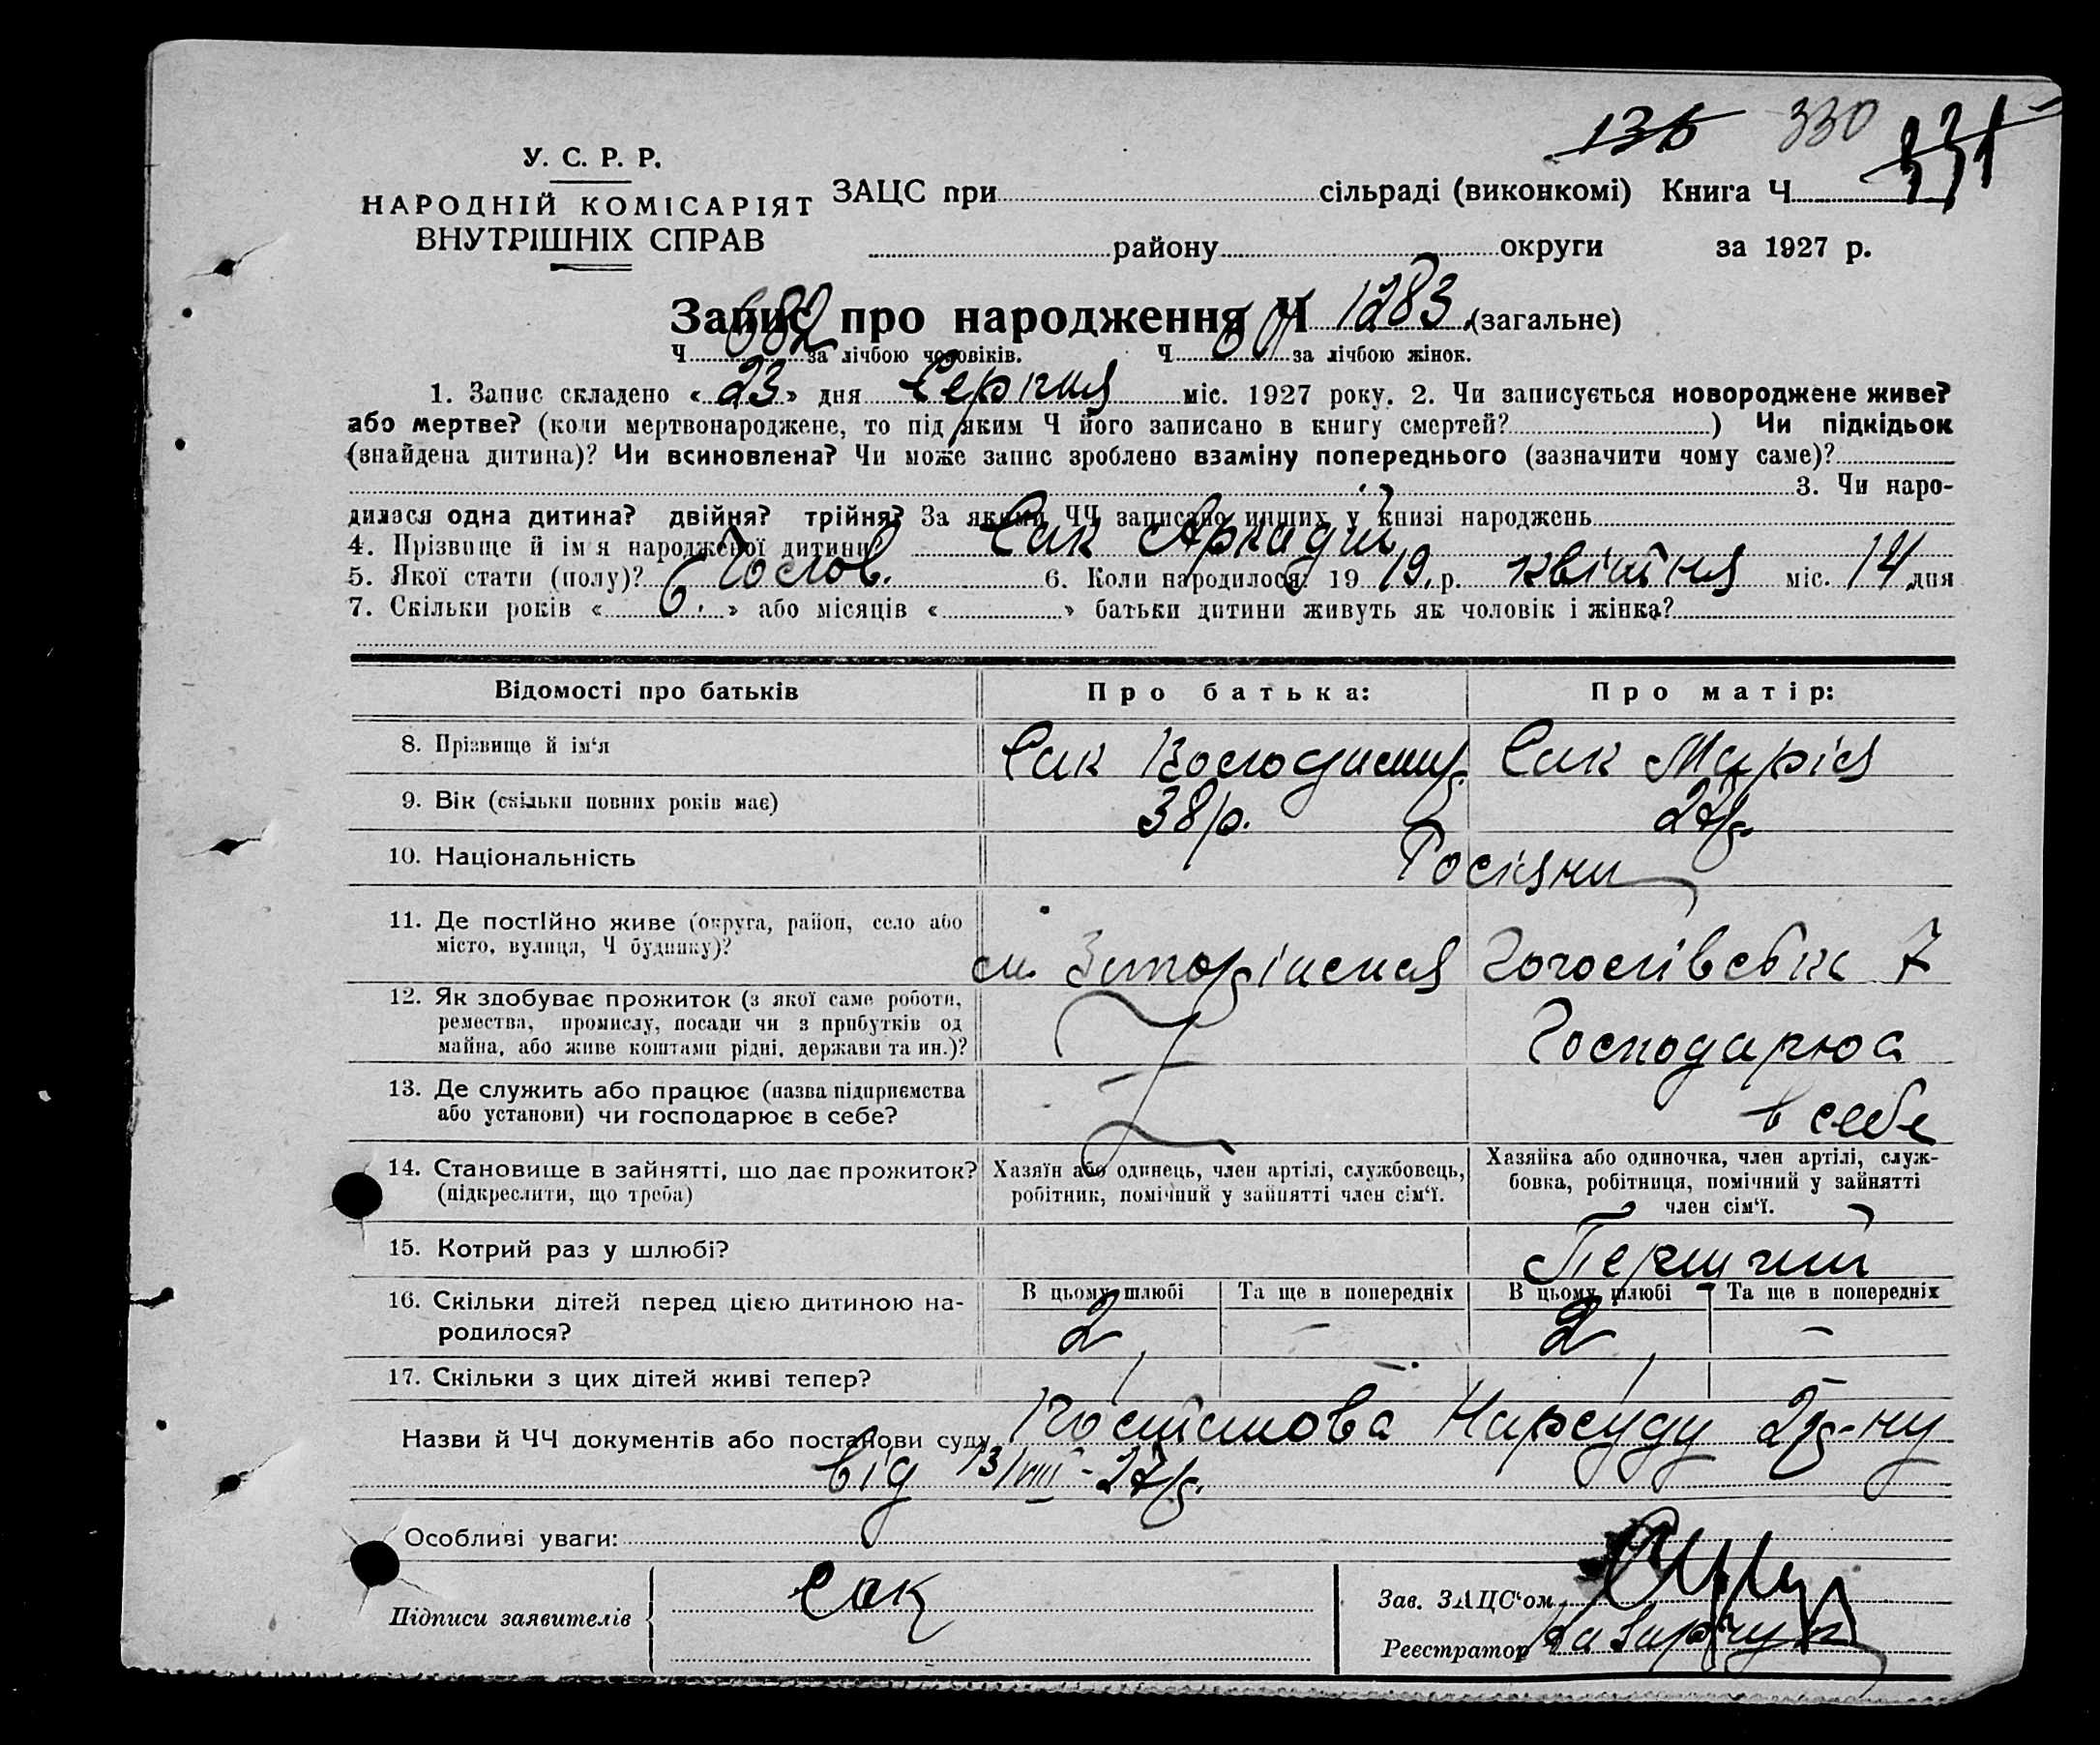 136 330 331
У. С. Р. Р.
НАРОДНІЙ КОМІСАРІЯТ
ВНУТРІШНІХ СПРАВ
ЗАЦС при сільраді (виконкомі) Книга Ч
району округи за 1927 р.
Запис про народження Ч 1283 (загальне)
Ч 682 за лічбою чоловіків. Ч за лічбою жінок.
1. Запис складено « 23 » дня Серпня міс. 1927 року. 2. Чи записується новороджене живе?
або мертве? (коли мертвонароджене, то під яким Ч його записано в книгу смертей? ) Чи підкідьок
(знайдена дитина)? Чи всиновлена? Чи може запис зроблено взаміну попереднього (зазначити чому саме)?
3. Чи наро-
дилася одна дитина? двійня? трійня? За якими ЧЧ записано инших у книзі народжень
4. Прізвище й ім'я народженої дитини Сак Аркадій
5. Якої стати (полу)? Чолов. 6. Коли народилося: 19 19 р. квітня міс. 14 дня
7. Скільки років « 6 » або місяців « » батьки дитини живуть як чоловік і жінка?
Відомості про батьків Про батька: Про матір:
8. Прізвище й ім'я Сак Володимир Сак Марія
9. Вік (скільки повних років має) 38 р. 27 р.
10. Національність Росіяни
11. Де постійно живе (округа, район, село або
місто, вулиця, Ч будинку)?
Голосіївська 7
12. Як здобуває прожиток (з якої саме роботи,
ремества, промислу, посади чи з прибутків од
майна, або живе коштами рідні, держави та ин.)?
Господарює
13. Де служить або працює (назва підприємства
або установи) чи господарює в себе?
в себе
14. Становище в зайнятті, що дає прожиток?
(підкреслити, що треба)
Хазяїн або одинець, член артілі, службовець,
робітник, помічний у зайнятті член сім'ї.
Хазяйка або одиночка, член артілі, служ-
бовка, робітниця, помічний у зайнятті
член сім'ї.
15. Котрий раз у шлюбі? Перший
16. Скільки дітей перед цією дитиною на-
родилося?
В цьому шлюбі Та ще в попередніх В цьому шлюбі Та ще в попередніх
2 – 2 –
17. Скільки з цих дітей живі тепер? 1 – 1 –
Назви й ЧЧ документів або постанови суду Постанова Нарсуду 2 р-ну
від 13/VIII-27 р.
Особливі уваги:
Підписи заявителів Сак
Зав. ЗАЦС'ом
Реєстратор